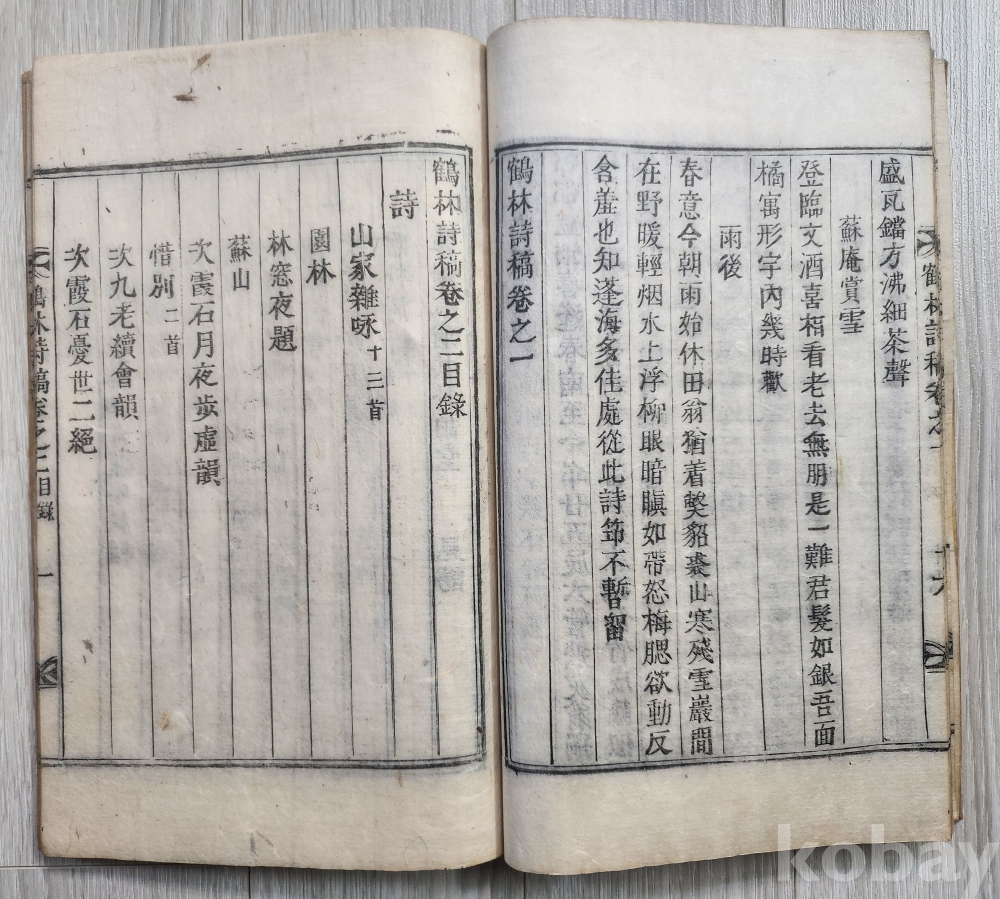 鶴林詩稿卷之一
十六
盛瓦鐺方沸細茶聲
蘇庵賞雪
登臨文酒喜相看老去無朋是一難君髮如銀吾面
橘寓形宇內幾時歡
雨後
春意今朝雨始休田翁猶着獘貂裘山寒殘雪巖間
在野暖輕烟水上浮柳眼暗瞋如帶怒梅腮欲動反
含羞也知蓬海多佳處從此詩筇不暫留
鶴林詩稿卷之一
鶴林詩稿卷之二目錄
詩
山家雜咏十三首
園林
林窓夜題
蘇山
次霞石月夜步虛韻
惜別二首
次九老續會韻
次霞石憂世二絕
鶴林詩稿卷之二目錄 一
kobay